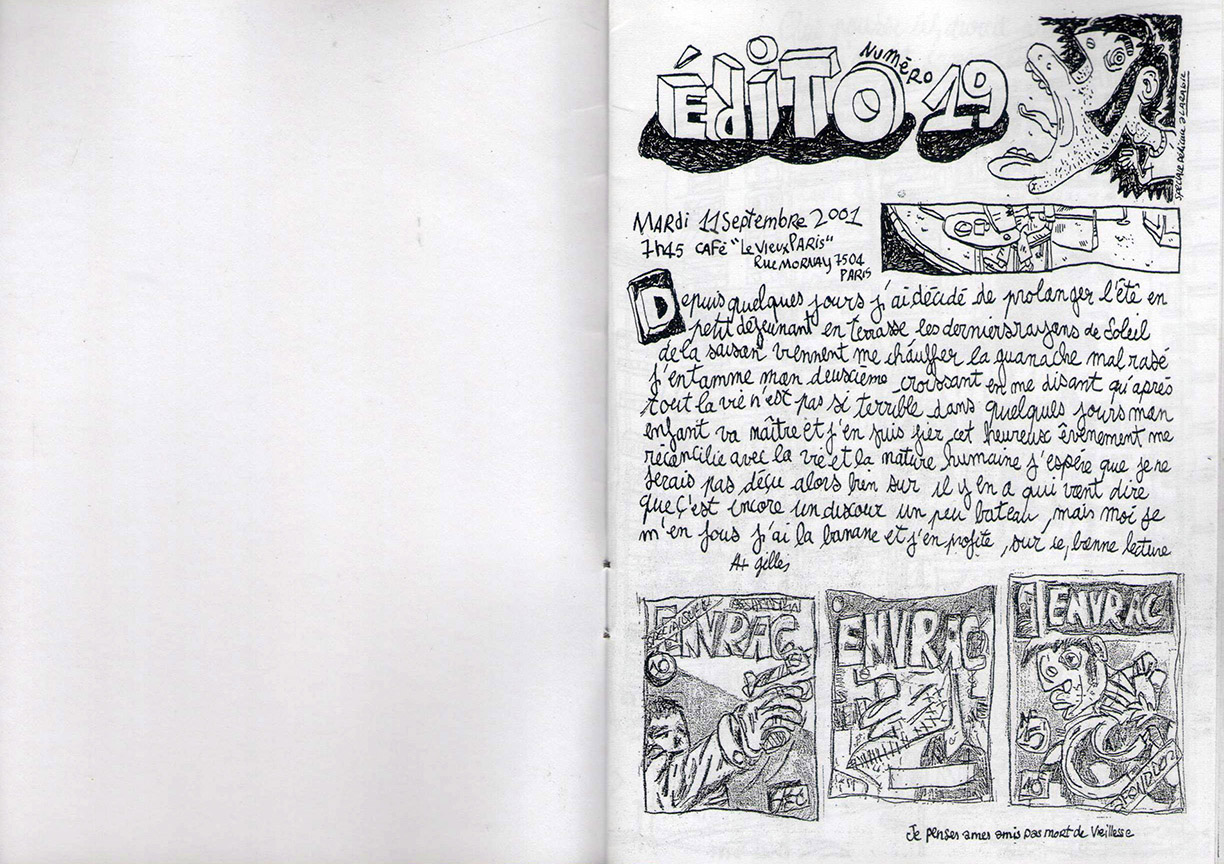 ÉDITO
NUMÉRO
19
SPECIALE DEDICACE A LARABIE
MARDI 11 Septembre 2001
7h45 CAFÉ "Le Vieux PARIS"
Rue MORNAY 7504
PARIS
Depuis quelques jours j'ai décidé de prolanger l'été en
petit déjeunant en terrasse les derniers rayons de Soleil
de la saison viennent me chauffer la guanache mal rasé
J'entamme mon deuxième croissant en me disant qu'après
tout la vie n'est pas si terrible dans quelques jours mon
enfant va naître et j'en suis fier cet heureux évènement me
réconcilie avec la vie et la nature humaine j'espére que je ne
serais pas déçu alors bien sur il y en a qui vont dire
que ç'est encore un discour un peu bateau, mais moi je
m'en fous j'ai la banane et j'en profite, sur ce, bonne lecture
A+ gilles
ENVRAC
ENVRAC
ENVRAC
Je penses a mes amis pas mort de Vieillesse